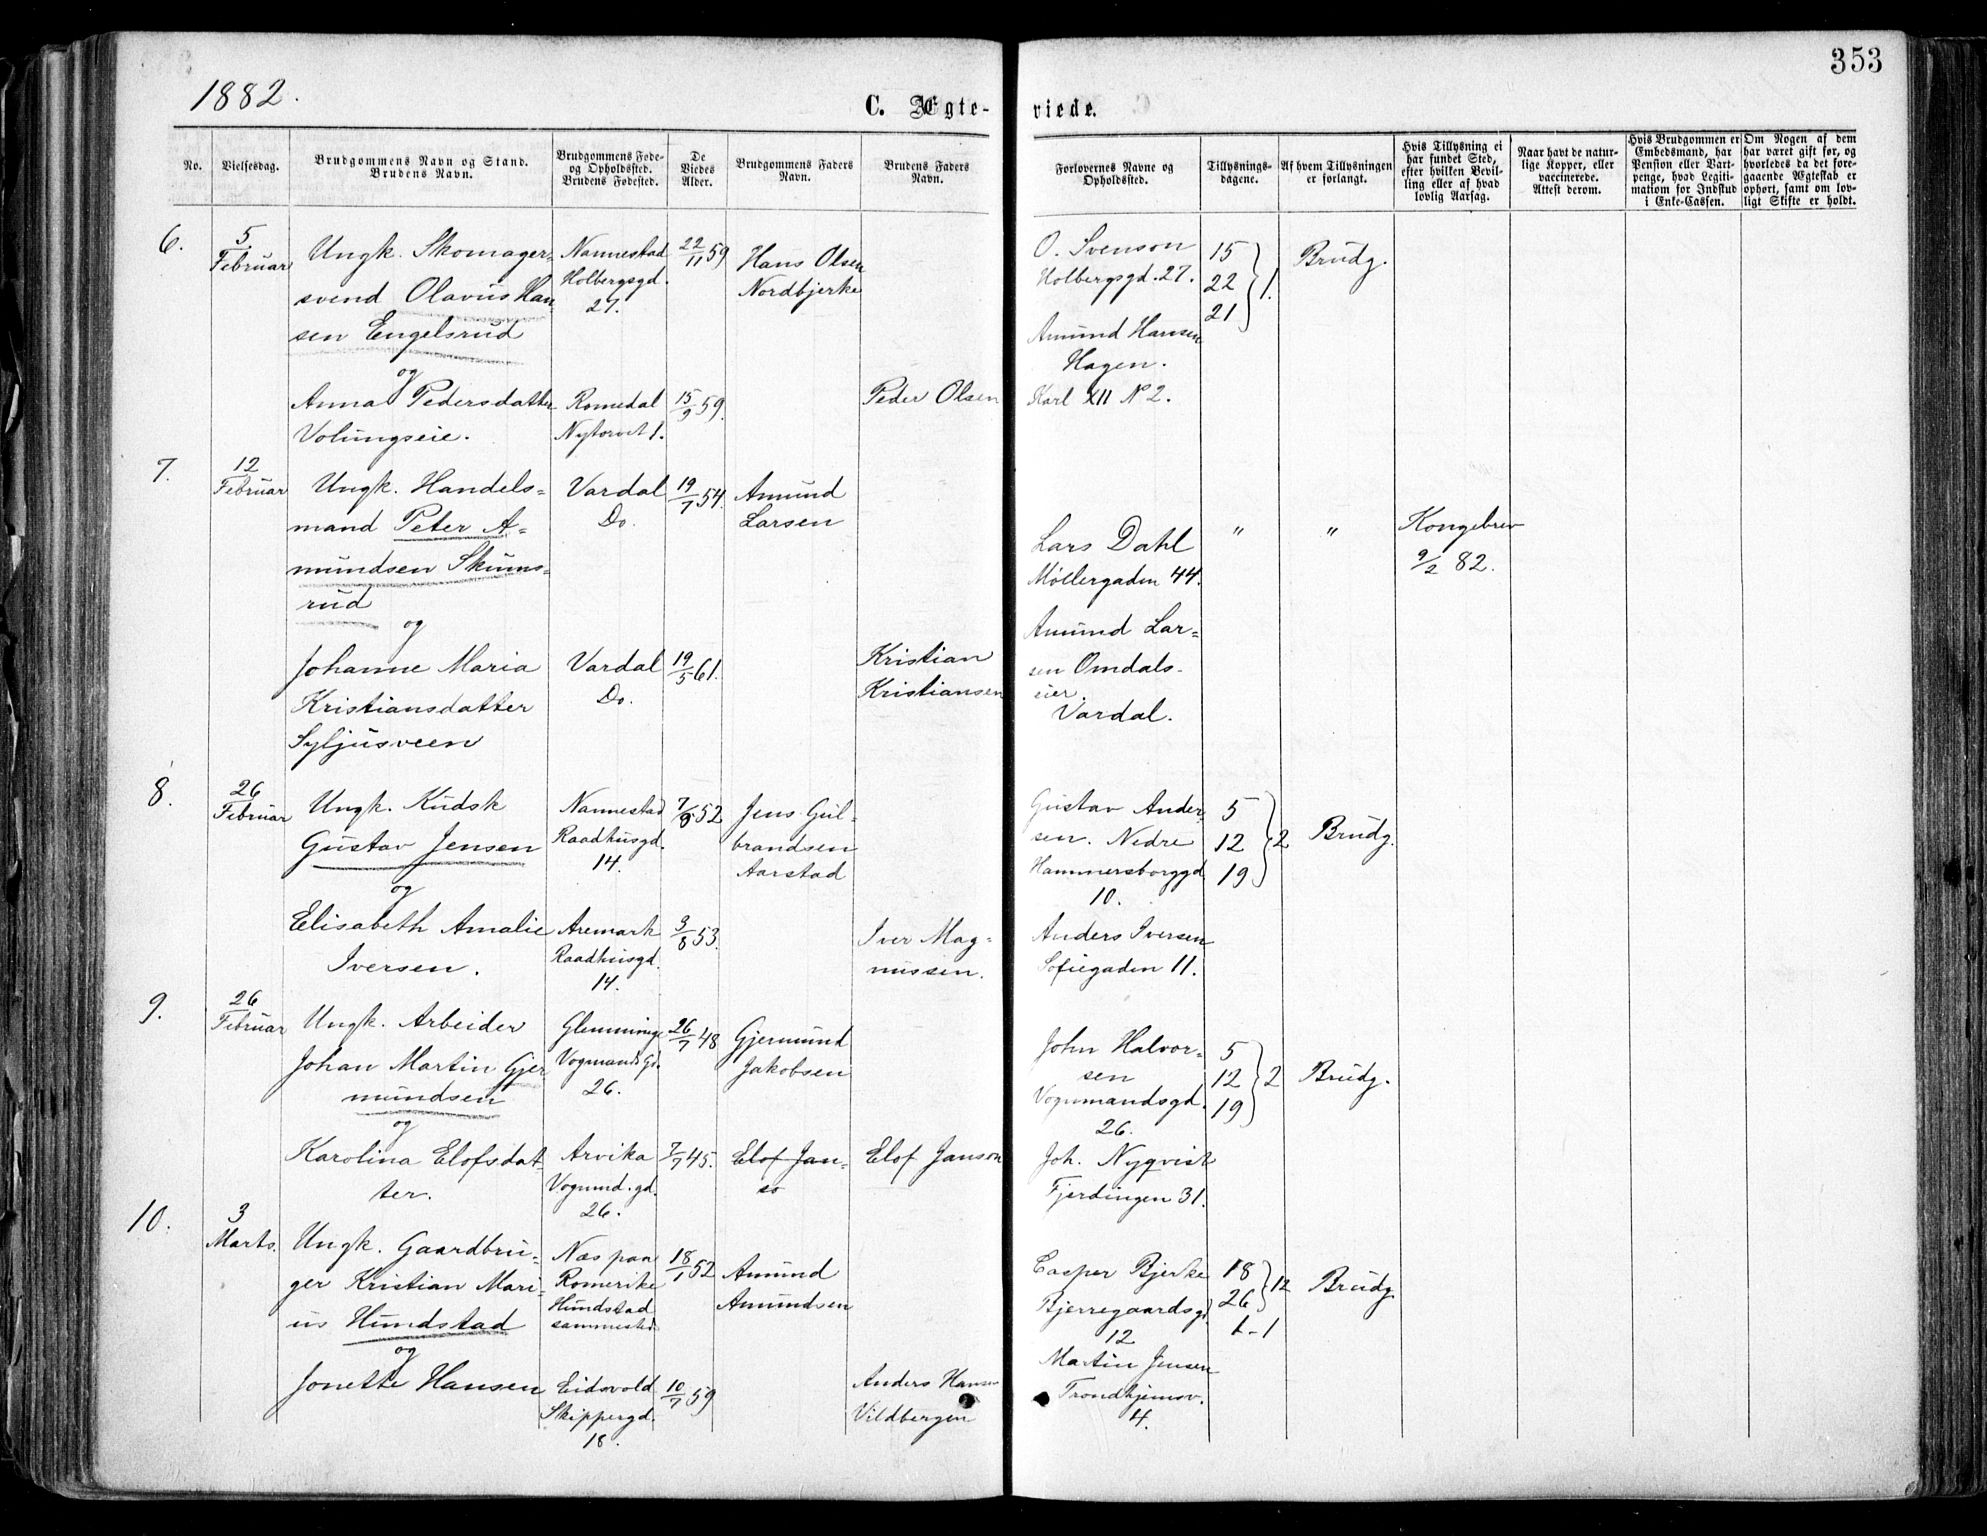 353
1882.
C. Ægte-
viede.
No.
Vielsesdag.
Brudgommens Navn og Stand.
Brudens Navn.
Brudgommens Føde-
og Opholdssted.
Brudens Fødested.
De
Viedes
Alder.
Brudgommens Faders
Navn.
Brudens Faders
Navn.
Forlovernes Navne og
Opholdssted.
Tillysnings-
dagene.
Af hvem Tillysningen
er forlangt.
Hvis Tillysning ei
har fundet Sted,
efter hvilken Bevil-
ling eller af hvad
lovlig Aarsag.
Naar havt de natur-
lige Kopper, eller
vaccinerede.
Attest derom.
Hvis Brudgommen er
Embedsmand, har
Pension eller Vart-
penge, hvad Legiti-
mation for Indskud
i Enke-Cassen.
Om Nogen af dem
har varet gift før, og
hvorledes da det fore-
gaaende Ægteskab er
ophørt, samt om lov-
ligt Skifte er holdt.
6.
5
Februar
Ungk. Skomager-
svend Olavus Han-
sen Engelsrud
og
Anna Pedersdatter
Volungseie.
Nannestad
Holbergsgd.
27.
Romedal
Nytorvet 1.
22/11 59
15/9 59.
Hans Olsen
Nordbjerke
Peder Olsen
O. Svenson
Holbergsgd. 27.
Amund Hansen
Hagen.
Karl XII N° 2.
15
22
21
1.
Brudg.
7.
12
Februar
Ungk. Handels-
mand Peter A-
mundsen Skums-
rud
og
Johanne Maria
Kristiansdatter
Syljusveen
Vardal
Do.
Vardal
Do.
19/7 54.
19/5 61.
Amund
Larsen
Kristian
Kristiansen
Lars Dahl
Møllergaden 44.
Amund Lar-
sen Omdals-
eier
Vardal.
"
"
Kongebrev
9/2 82.
8.
26
Februar
Ungk. Kudsk
Gustav Jensen
og
Elisabeth Amalie
Iversen.
Nannestad
Raadhusgd.
14.
Aremark
Raadhusgd.
14.
7/8 52
3/8 53.
Jens Gul-
brandsen
Aarstad
Iver Mag-
nussen.
Gustav Ander-
sen. Nedre
Hammersborggd
10.
Anders Iversen
Sofiegaden 11.
5
12
19
2
Brudg.
9.
26
Februar
Ungk. Arbeider
Johan Martin Gjer
mundsen
og
Karolina Elofsdat-
ter.
Glemminge
Vogmandsgd.
26.
Arvika
Vogmd.gd.
26.
26/7 48
7/7 45.
Gjermund
Jakobsen
Elof Jan-
so
Elof Janson
John Halvor-
sen
Vognmandsgd.
26.
Joh. Nyqvist
Fjerdingen 31.
5
12
19
2
Brudg.
10.
3
Marts.
Ungk. Gaardbru-
ger Kristian Mari-
us Hundstad
og
Jonette Hansen
Næs paa
Romerike
Hundstad
sammested
Eidsvold
Skippergd.
18.
18/1 52
10/7 59
Amund
Amundsen
Anders Hansen
Vildbergen
Casper Bjerke
Bjerregaardsgd
12
Martin Jensen
Trondhjemsv.
4.
18
26
12
Brudg.